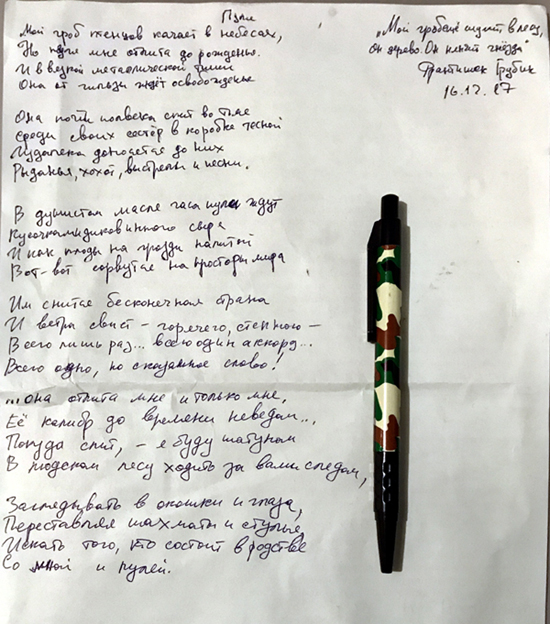 Пули
„Мой гробешь шумит в лесу,
он дерево. Он нянчит гнёзда"
Франтишек Грубин
16.12.17
Мой гроб птенцов качает в небесах,
Но пуля мне отлита до рожденья.
И в видной металлической
Она от гильзы ждёт освобожденье
Она почти полвека спит во тьме
Среди своих сестёр в коробке тесной
Издалека доносятся до них
Рыданья, хохот, выстрелы и песни.
В душистом масле часа пули ждут
Кусочками диковинного сыра
И как плоды на грозди налитой
Вот-вот сорвутся на просторы мира
Им снится бесконечная страна
И ветра свист – горячего, степного –
Всего лишь раз... всего один аккорд...
Всего одно, но сказанное слово!
...она отлита мне и только мне,
Её калибр до времени неведом...
Покуда спит, – я буду шатуном
В людском лесу ходить за вами следом,
Заглядывать в окошки и глаза,
Переставляя шахматы и стулья,
Искать того, кто состоит в родстве
Со мной и пулей.